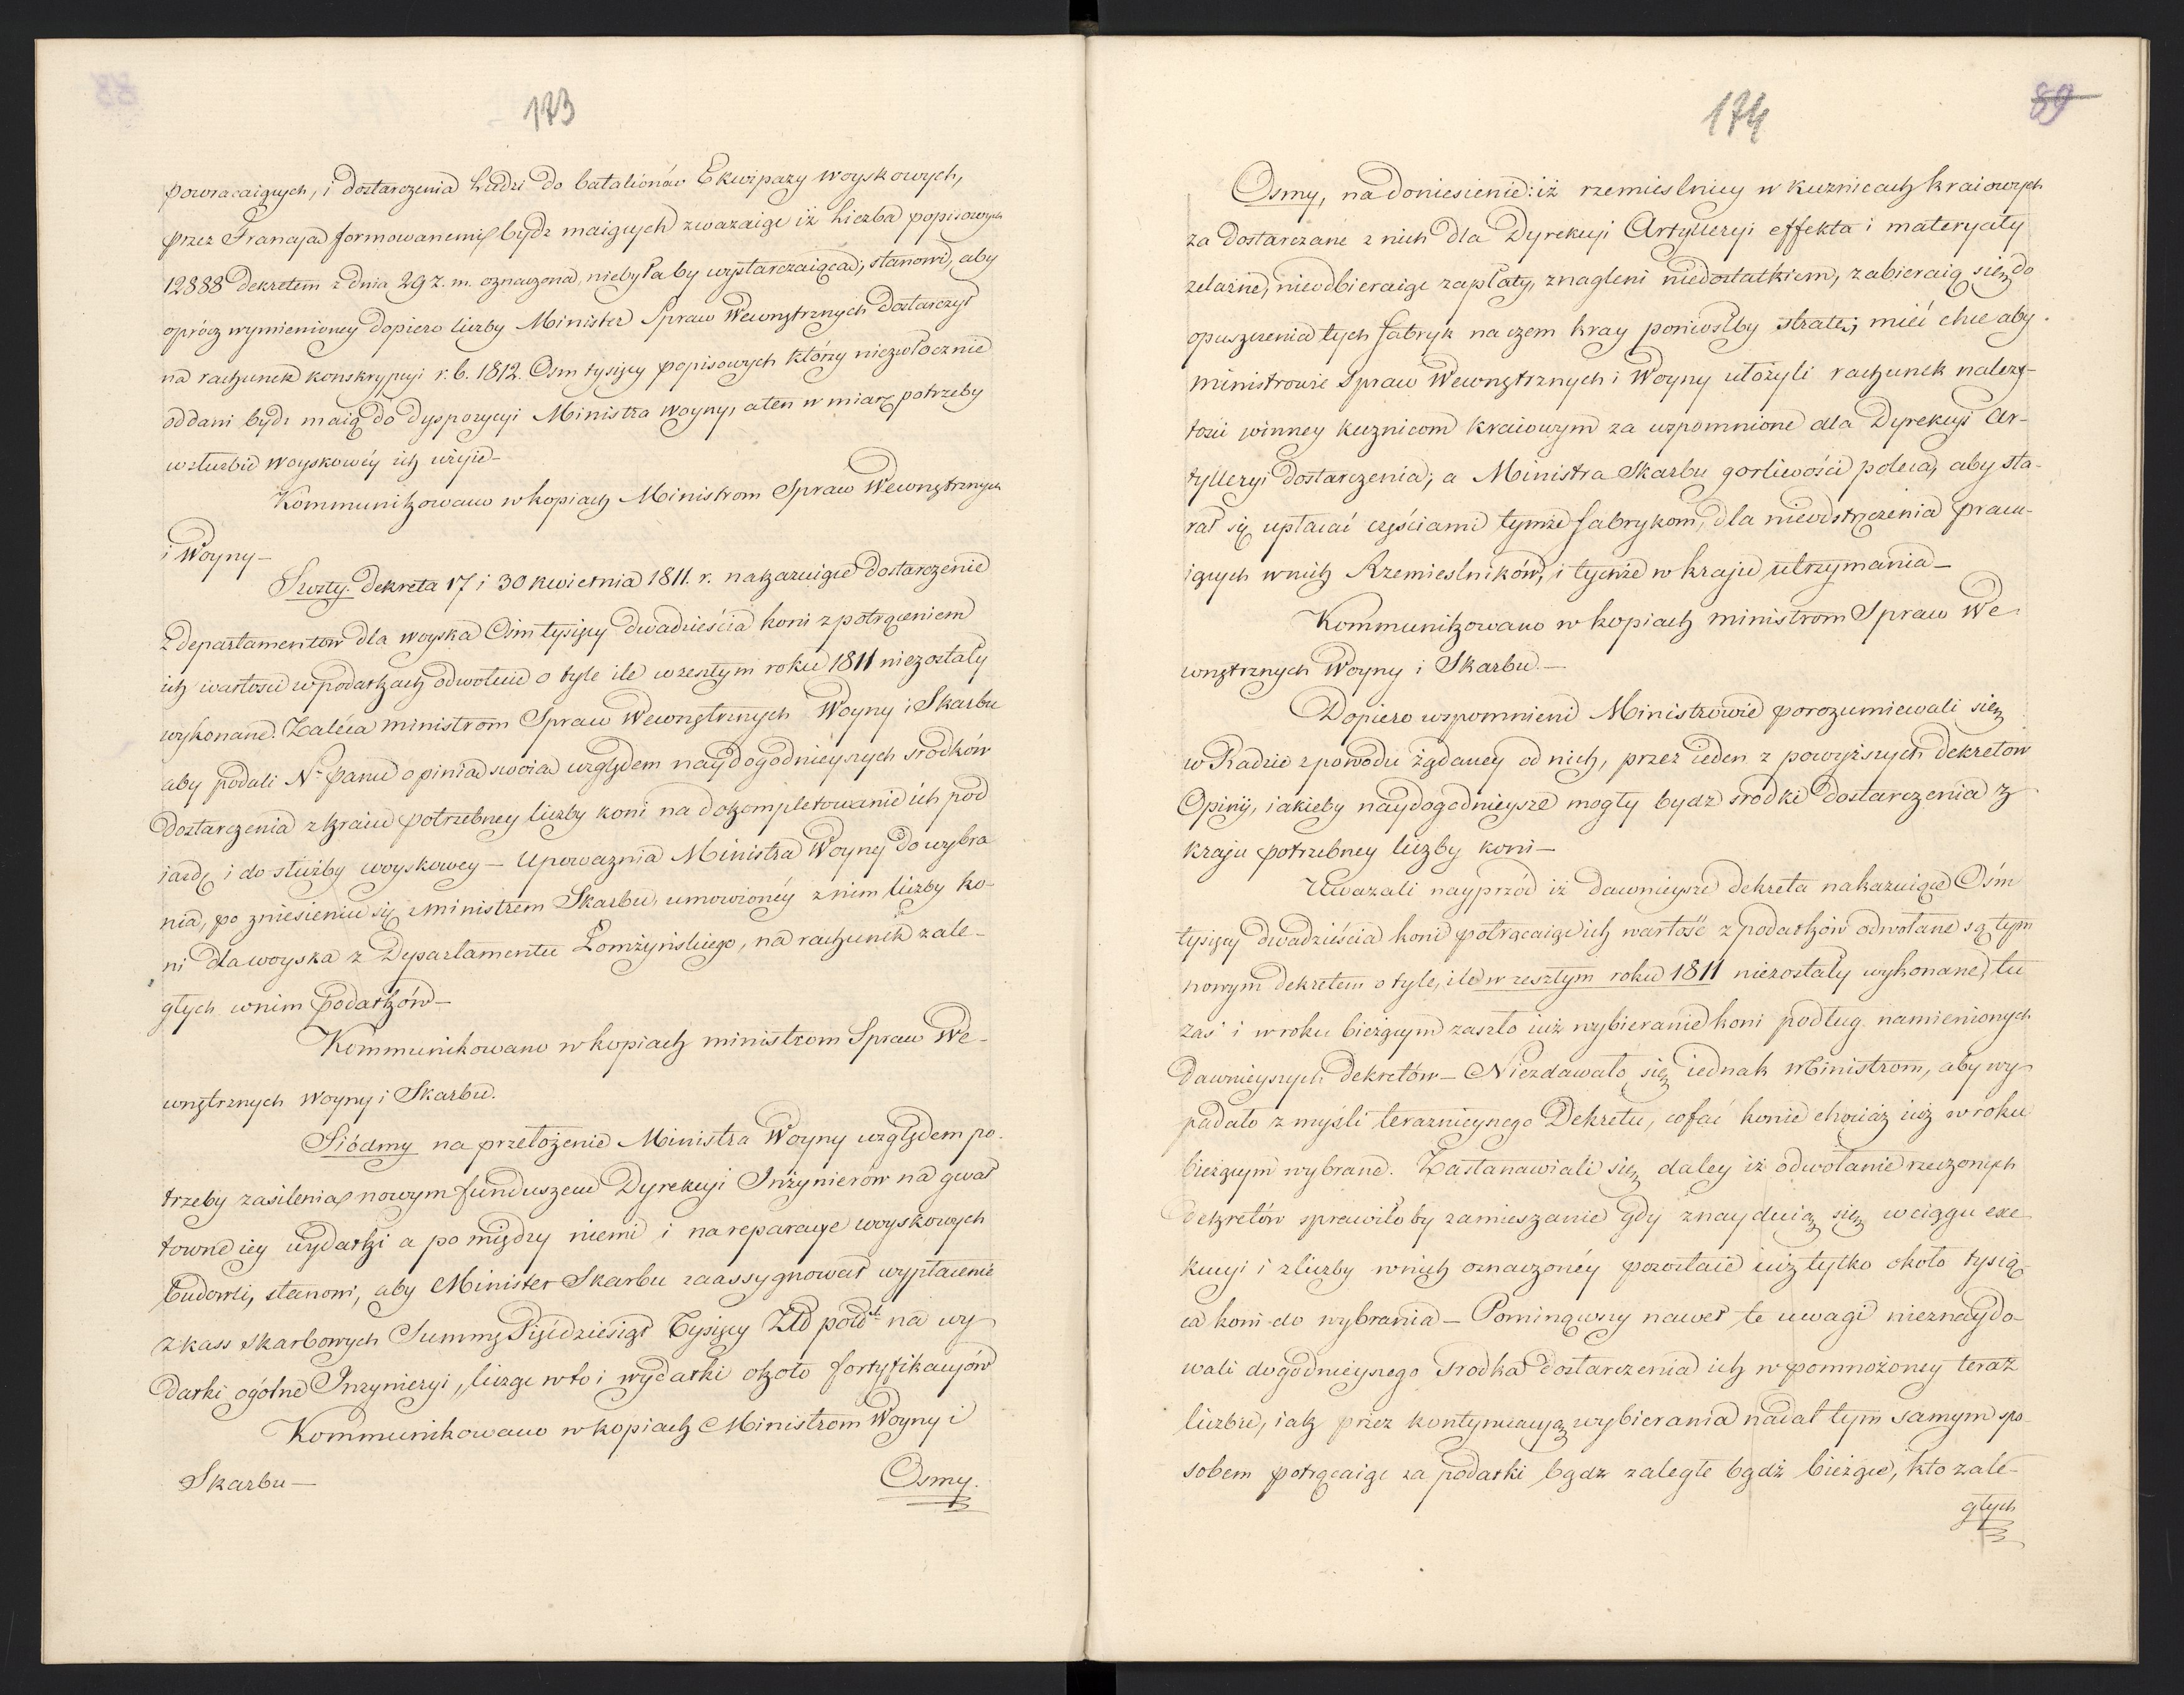 173
powracaiących, i dostarczenia Ludzi do batalionów Ekwipazy woyskowych,
przez Francyą formowanemi bydź maiących zwazaiąc iż Liczba popisowych
12888 dekretem z dnia 29 z. m. oznaczona, niebyłaby wystarczaiąca; stanowi, aby
oprócz wymienioney dopiero liczby Minister Spraw Wewnętrznych dostarczył
na rachunek konskrypcyi r. b. 1812. Osm tysięcy popisowych którzy niezwłocznie
oddani bydź maią do dyspozycyi Ministra Woyny, a ten w miarę potrzeby
w służbie woyskowéy ich użyie —
Kommunikowano w kopiach Ministrom Spraw Wewnętrznych
i Woyny —
Szosty. Dekreta 17 i 30 kwietnia 1811. r. nakazuiące dostarczenie
z departamentow dla woyska Osm tysięcy dwadzieścia koni z potrąceniem
ich wartosci w podatkach odwołuie o tyle ile w zeszłym roku 1811 niezostały
wykonane. Zaléca ministrom Spraw Wewnętrznych Woyny i Skarbu
aby podali Nu Panu opinią swoią względem naydogodnieyszych srodków
dostarczenia z kraiu potrzebney liczby koni na dokompletowanie ich pod
iazdę i do służby woyskowey — Upoważnia Ministra Woyny do wybra
nia, po zniesieniu się z Ministrem Skarbu, umowionéy z nim liczby ko-
ni dla woyska z Departamentu Łomżyńskiego, na rachunek zale-
głych w nim podatków —
Kommunikowano w kopiach ministrom Spraw We-
wnętrznych Woyny i Skarbu.
Siódmy na przełożenie Ministra Woyny względem po-
trzeby zasilenia nowym funduszem Dyrekcyi Inżynierów na gwał
towne iey wydatki a po między niemi i na reparacye woyskowych
budowli, stanowi, aby Minister Skarbu zaassygnował wypłacenie
z kass skarbowych Summę Pięćdziesiąt Tysięcy Złł polskł na wy
datki ogólne Inzynieryi, licząc w to i wydatki około fortyfikacyów
Kommunikowano w kopiach Ministrom Woyny i
Skarbu —
Osmy.
174
89
Osmy, na doniesienie: iż rzemieslnicy w kuznicach kraiowych
za dostarczane z nich dla Dyrekcyi Artylleryi effekta i materyały
żelazne, nieodbieraiąc zapłaty, znagleni niedostatkiem, zabieraią się do
opuszczenia tych fabryk na czem kray poniosłby stratę; mieć chce aby
ministrowie Spraw Wewnętrznych i Woyny ułożyli rachunek należy-
tosci winney kuznicom kraiowym za wspomnione dla Dyrekcyi Ar-
tylleryi dostarczenia; a Ministra Skarbu gorliwości poleca, aby sta-
rał się upłacać częściami tymże fabrykom, dla nieodstręczenia pracu-
iących w nich Rzemieslników, i tychże w kraju utrzymania —
Kommunikowano w kopiach ministrom Spraw We-
wnętrznych Woyny i Skarbu —
Dopiero wspomnieni Ministrowie porozumiewali się
w Radzie z powodu żądaney od nich, przez ieden z powyższych dekretow
Opinij, iakieby naydogodnieysze mogły bydz srodki dostarczenia z
kraju potrzebney liczby koni —
Uważali nayprzód iż dawnieysze dekreta nakazuiące Ośm
tysięcy dwadzieścia koni potrącaiąc ich wartość z podatków odwołane są tym
nowym dekretem o tyle, ile w zeszłym roku 1811 niezostały wykonane, tu
zaś i w roku bieżącym zaszło iuż wybieranie koni podług namienionych
dawnieyszych dekretów — Niezdawało się iednak Ministrom, aby wy-
padało z myśli teraznieyszego Dekretu, cofać konie chociaż iuż w roku
bieżącym wybrane. Zastanawiali się daley iż odwołanie rzeczonych
dekretów sprawiłoby zamieszanie gdy znayduią się w ciągu exe
kucyi i z liczby w nich oznaczonéy pozostaie iuż tylko około tysią-
ca koni do wybrania — Pominąwszy nawet te uwagi nieznaydo-
wali dogodnieyszego srodka dostarczenia ich w pomnożoney teraz
liczbie, iak przez kontynuacyą wybierania nadal tym samym spo-
sobem potrącaiąc za podatki bądz zaległe bądż bieżące, kto zale-
głych